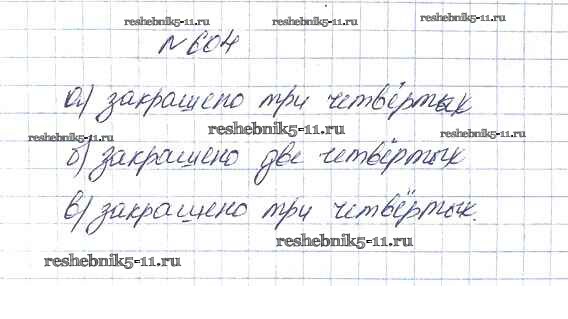 reshebnik5-11.ru reshebnik5-11.ru reshebnik5-11.ru
№604
а) закрашено три четвёртых
reshebnik5-11.ru
reshebnik5-11.ru
б) закрашено две четвёртых
в) закрашено три четвёртых.
reshebnik5-11.ru
reshebnik5-11.ru